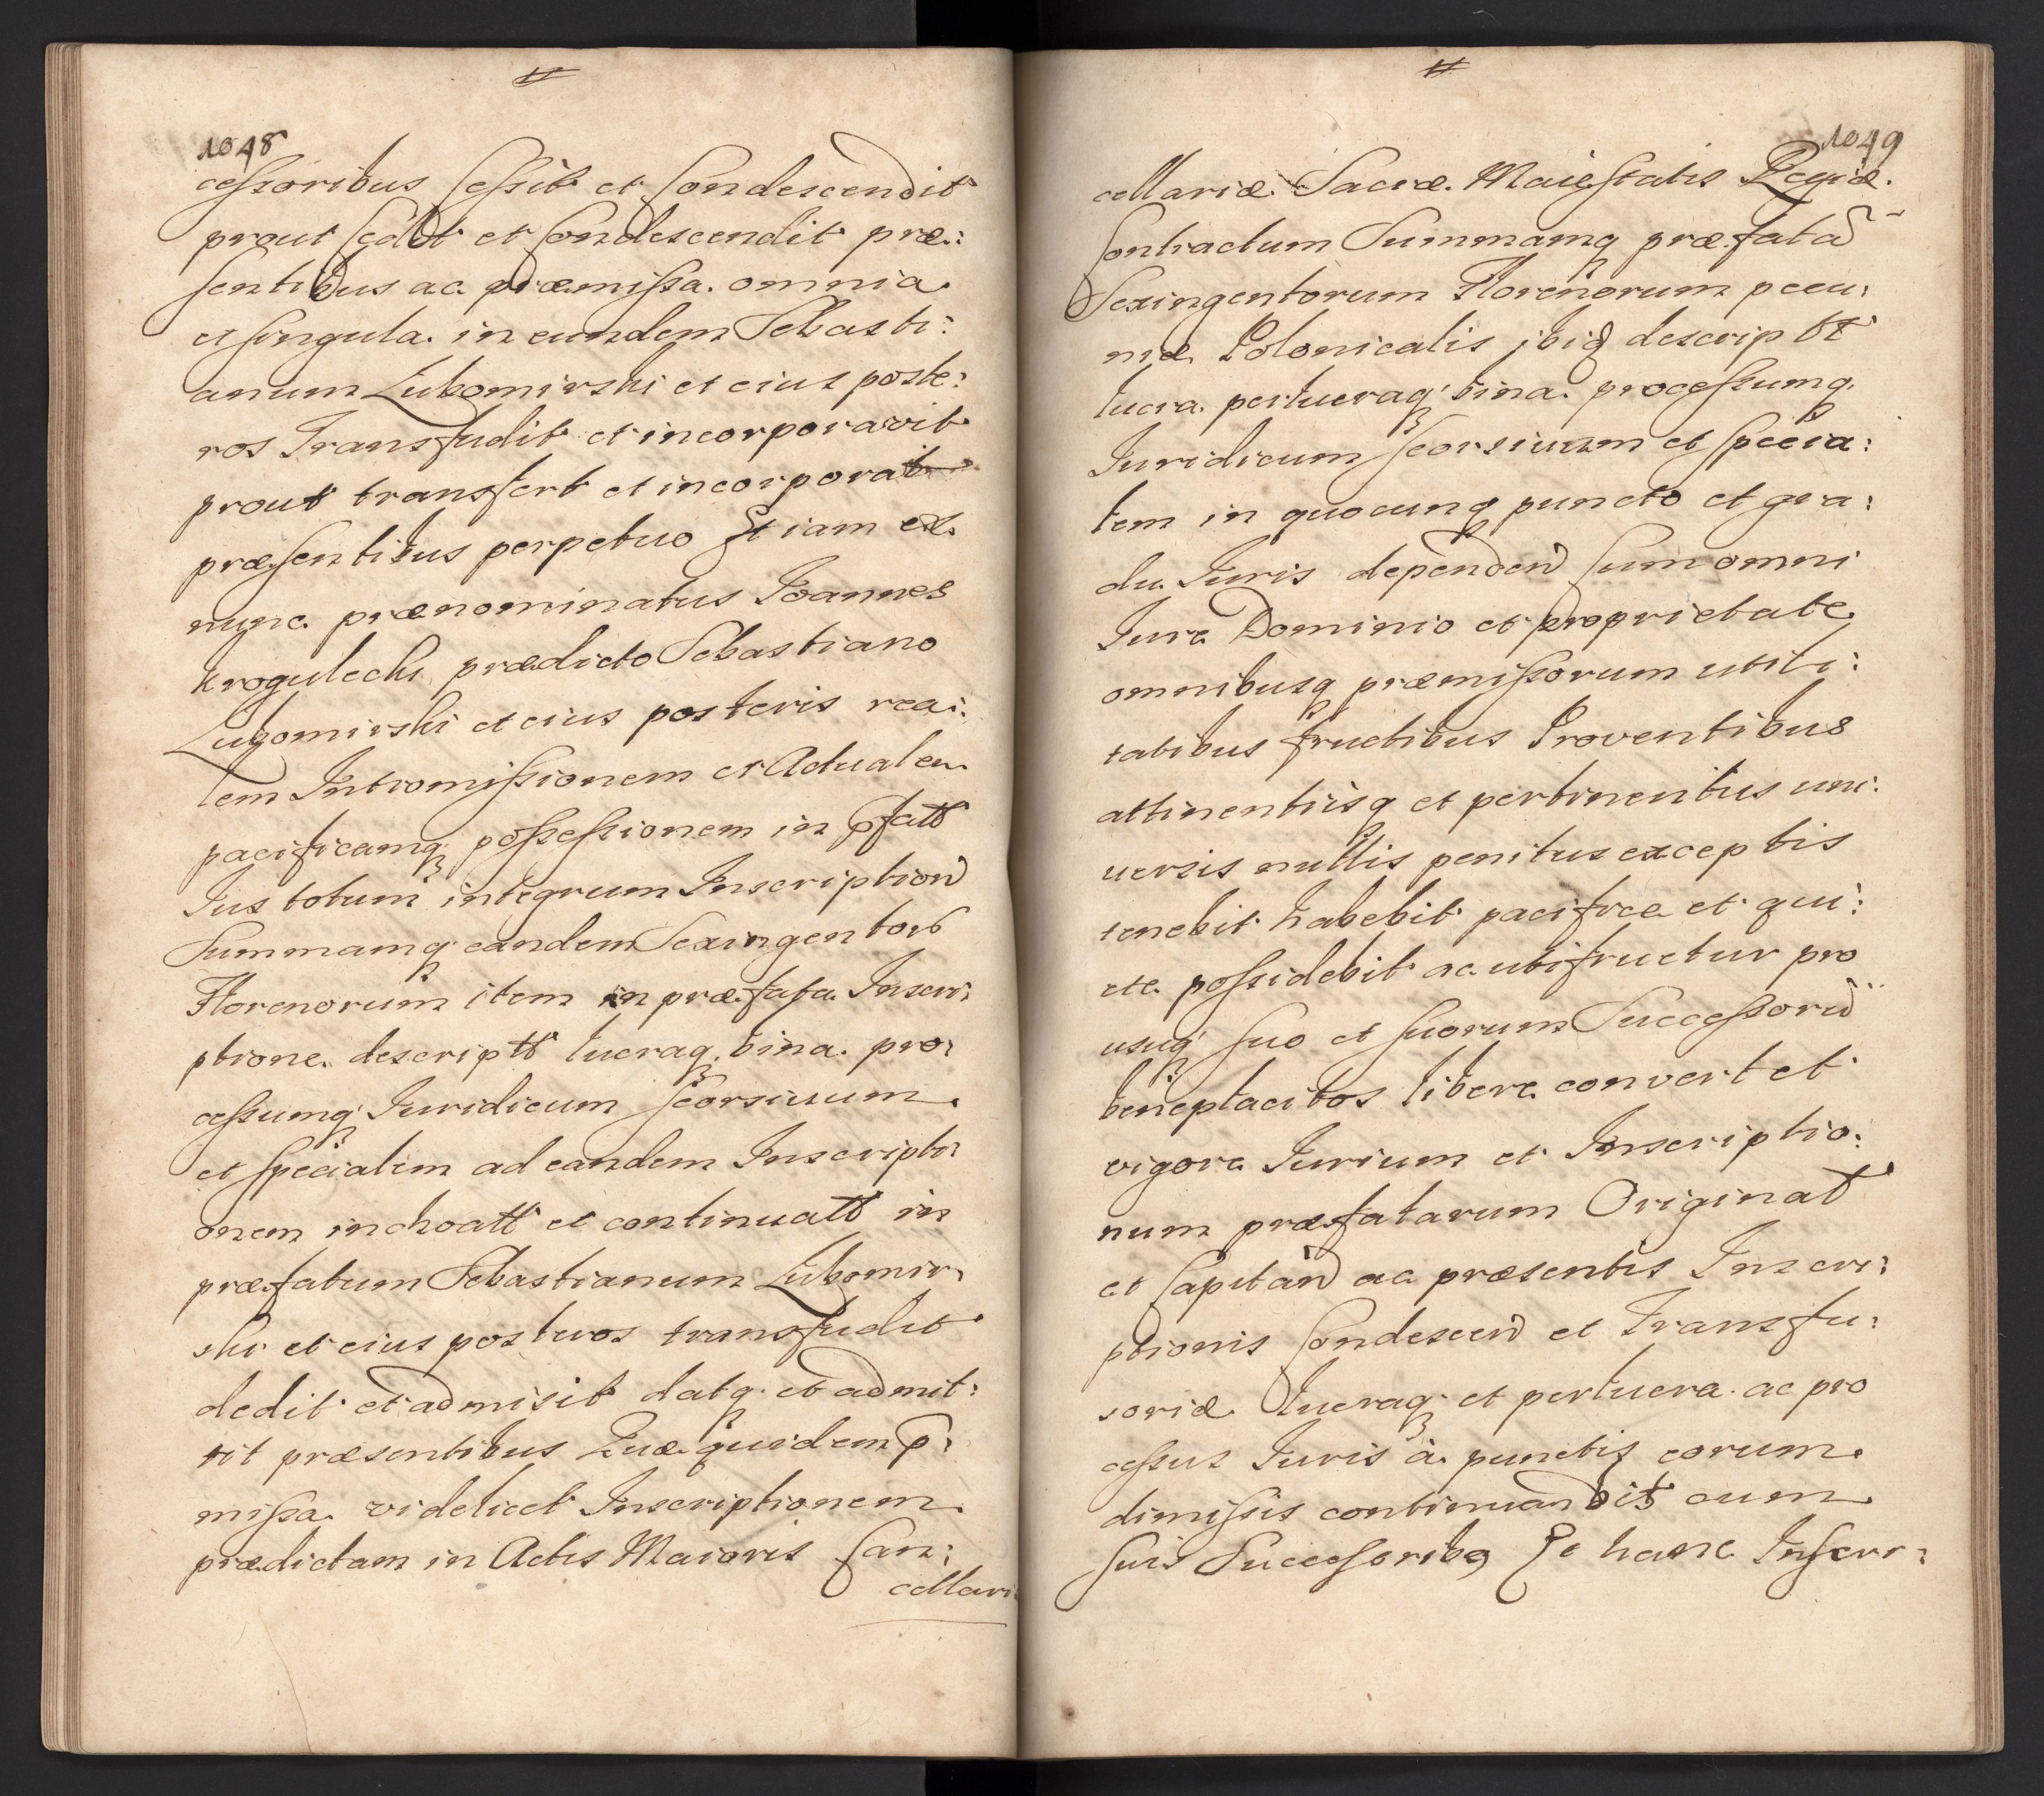 1048
cessoribus Cessit et Condescendit
prout Cedit et Condescendit præ:
sentibus ac præmissa omnia
et singula in eundem Sebasti:
anum Lubomirski et eius poste:
ros Transfudit et incorporavit
prout transfert et incorporat
præsentibus perpetuo Et iam ex
nunc prænominatus Ioannes
Krogulecki prædicto Sebastiano
Lubomirski et eius posteris rea:
lem Intromissionem et Actualem
pacificamq possessionem in pfatt
Ius totum integrum Inscription
Summamq eandem Sexingentor
Florenorum item in præfata Inscri:
ptione descriptt lucraq bina pro:
cessumq Iuridicum seorsiuum
et specialem ad eandem Inscripti:
onem inchoatt et continuatt in
præfatum Sebastianum Lubomir:
ski et eius posteros transfudit
dedit et admisit datq et admit:
tit præsentibus Quæ quidem p:
missa videlicet Inscriptionem
prædictam in Actis Maioris Can:
cellari
1049
cellariæ Sacræ Maiestatis Regiæ
Contractum Summamq præfatã
Sexingentorum Florenorum pecu:
niæ Polonicalis ibiq descriptt
lucra perlucraq bina processumq
Iuridicum seorsiuum et specia:
lem in quocunq puncto et gra:
du Iuris dependen Cum omni
Iure Dominio et proprietate
omnibusq præmissorum utili:
tatibus fructibus Proventibus
attinentiisq et pertinentiis uni:
uersis nullis penitus exceptis
tenebit habebit pacifice et qui:
ete possidebit ac utifruetur pro
usuq suo et suorum Successorũ
beneplacitos libere convertet
vigore Iurium et Inscriptio:
num præfatarum Original
et Capitan ac præsentis Inscri:
ptionis Condescen et Transfu:
soriæ lucraq et perlucra ac pro
cessus Iuris à punctis eorum
dimissis continuabit cum
suis Successoribq Et hanc Inscri: